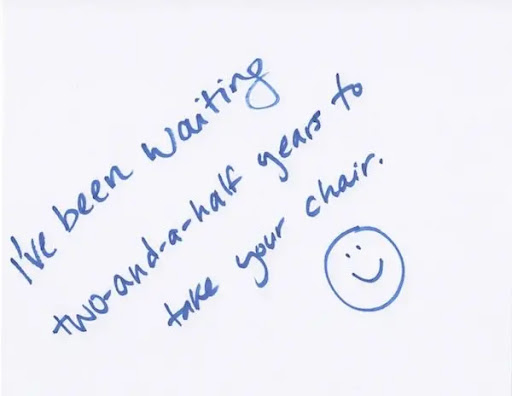 I've been waiting
two-and-a-half years to
take your chair.